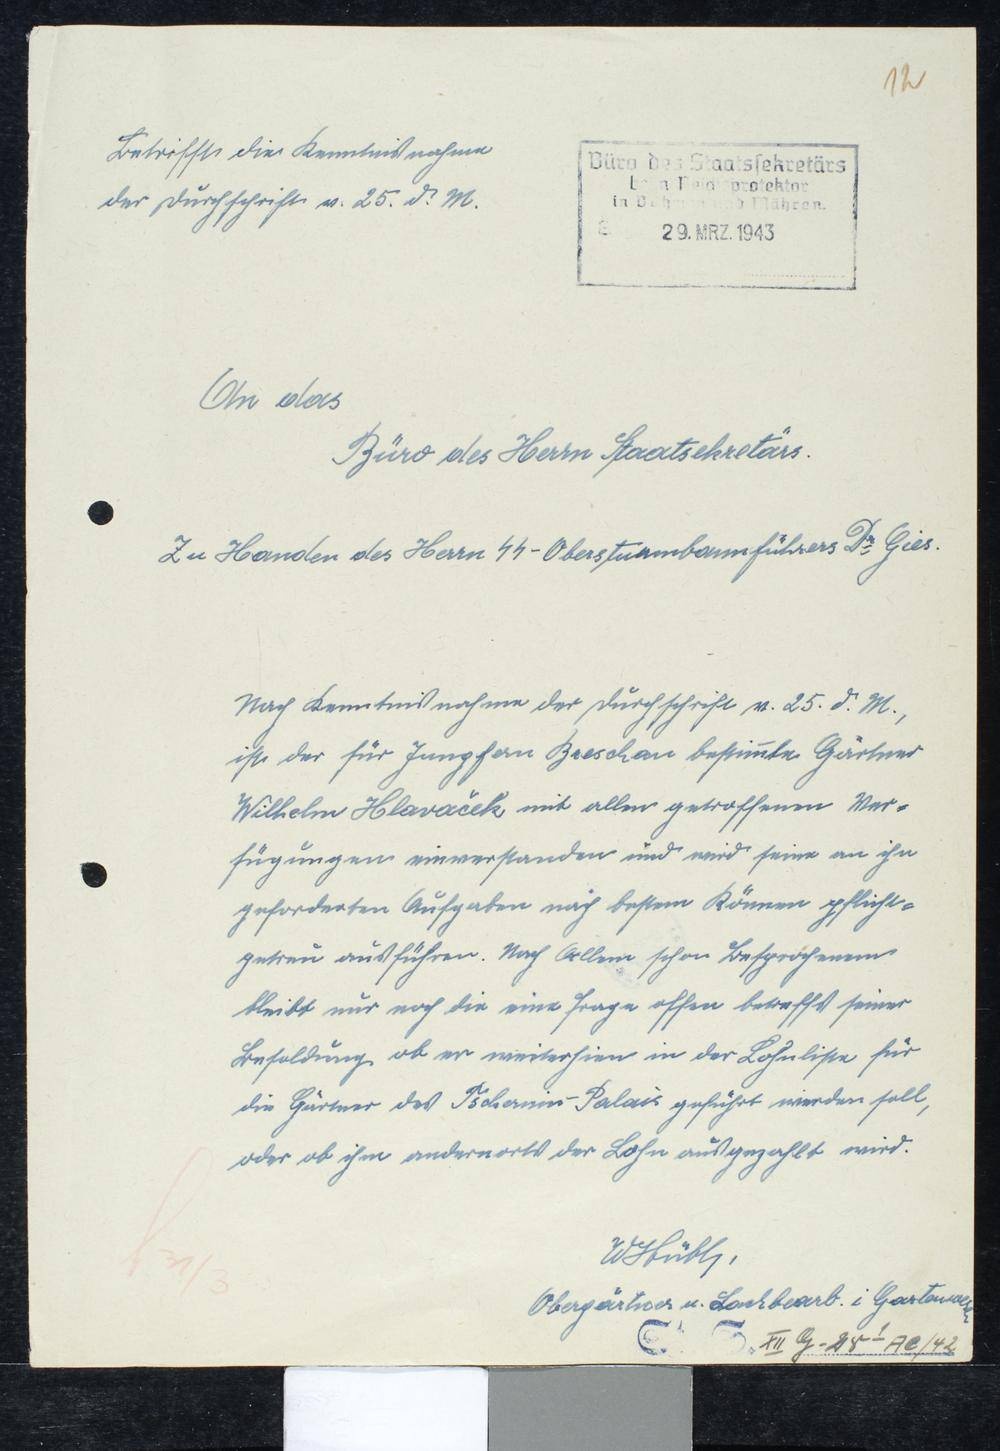 12
Betrifft die Kenntnisnahme
der Durchschrift v. 25. d. M.
Büro des Staatssekretärs
beim Reichsprotektor
in Böhmen und Mähren.
29. MRZ. 1943
An das
Büro des Herrn Staatsekretärs.
Zu Handen des Herrn SS-Obersturmbannführers Dr Gies.
Nach Kenntnisnahme der Durchschrift v. 25. d. M.,
ist der für Jungfern Breschan bestimmte Gärtner
Wilhelm Hlavaček mit allen getroffenen Ver=
fügungen einverstanden und wird seine an ihn
geforderten Aufgaben nach bestem Können pflicht=
getreu ausführen. Nach Allem schon Besprochenem
bleibt nur noch die eine Frage offen betreffs seiner
Besoldung, ob er weiterhien in der Lohnliste für
die Gärtner des Tschernin-Palais geführt werden soll,
oder ob ihm andernorts der Lohn ausgezahlt wird.
Obergärtner u. Sachbearb. i Gartenwes
XII G-